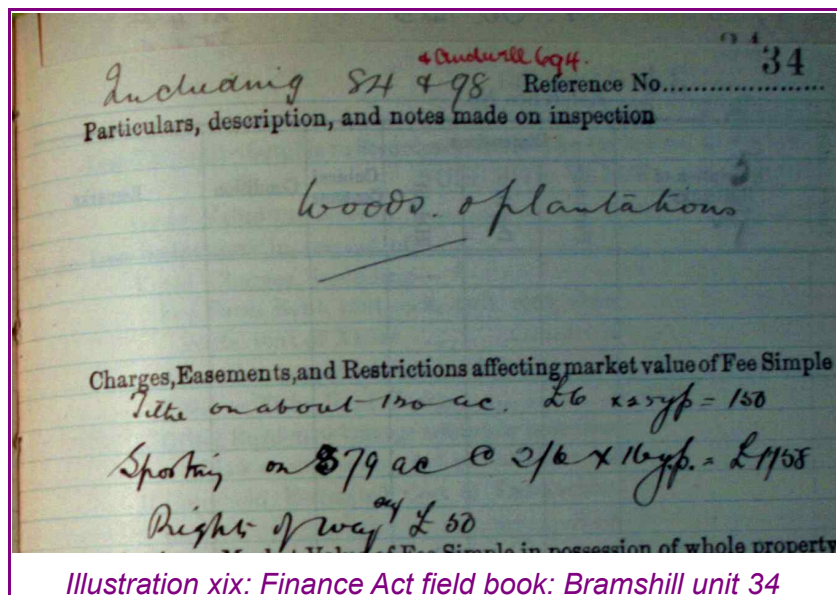 34
& Crudwell 694.
Including 84 & 98 Reference No......................
Particulars, description, and notes made on inspection
Woods. & plantations
Charges, Easements, and Restrictions affecting market value of Fee Simple
Tithe on about 120 ac. £6 x 25yp = 150
Sporting on 579 ac @ 2/6 x 16yp. = £1158
Rights of way say £50
Market Value of Fee Simple in possession of whole property
Illustration xix: Finance Act field book: Bramshill unit 34